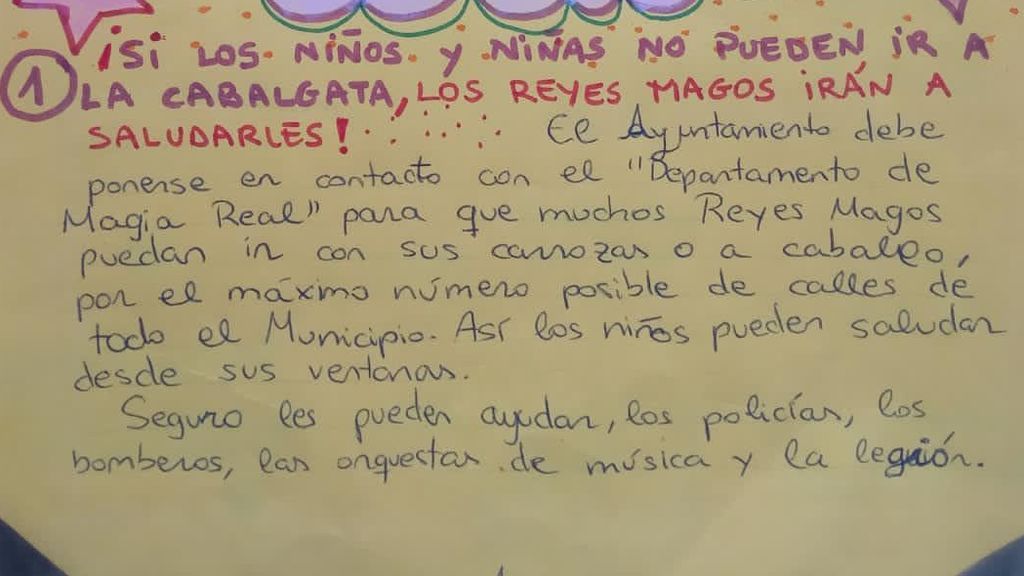 1
¡SI LOS NIÑOS Y NIÑAS NO PUEDEN IR A
LA CABALGATA, LOS REYES MAGOS IRÁN A
SALUDARLES! El Ayuntamiento debe
ponerse en contacto con el "Departamento de
Magia Real" para que muchos Reyes Magos
puedan ir con sus carrozas o a caballo,
por el máximo número posible de calles de
todo el Municipio. Así los niños pueden saludar
desde sus ventanas.
Seguro les pueden ayudar, los policías, los
bomberos, las orquestas de música y la legión.